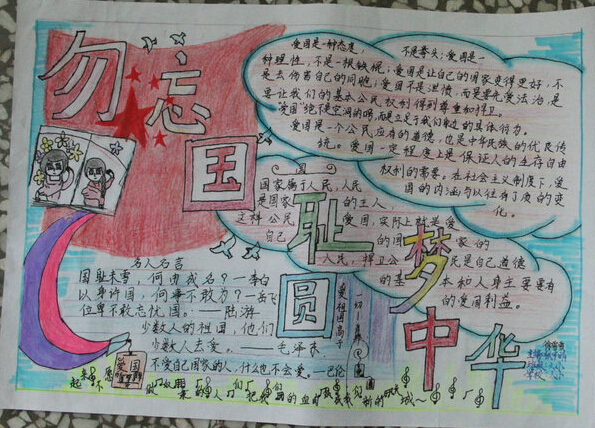 勿忘国耻
圆梦中华
爱国是一种态度，不是拳头；爱国是一
种理性，不是一根铁棍；爱国是让自己的国家变得更好，不
是去伤害自己的同胞；爱国不是泄愤，而是要先爱法治，是
要让我们的基本公民权利得到尊重和捍卫。
爱国是一个公民应有的道德，也是中华民族的优良传
统。爱国一定程度上是保证人的生存自由
权利的需要。在社会主义制度下，爱
国的内涵与以往有了质的变
化。
国家属于人民，人民
是国家的主人，
公民爱国，实际上就是爱
自己的国家的
人民，捍卫公民是自己道德
的基本和人身主要果有
的爱国利益。
名人名言
国耻未雪，何由成名？—李白
以身许国，何事不敢为？—岳飞
位卑不敢忘忧国。——陆游
少数人的祖国，他们
少数人去爱。——毛泽东
不爱自己国家的人，什么也不会爱。—巴伦
爱祖国高于一切
爱国
起来 不愿做奴隶的人们 把我们的血肉 我们新的 城